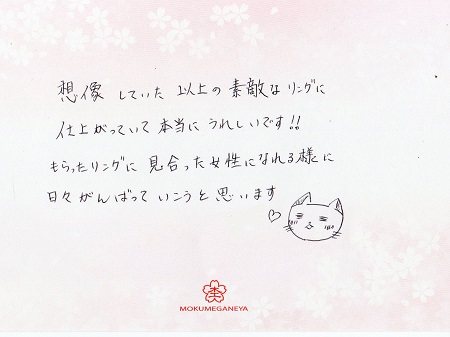 想像していた以上の素敵なリングに
仕上がっていて本当にうれしいです!!
もらったリングに見合った女性になれる様に
日々がんばっていこうと思います
MOKUMEGANEYA